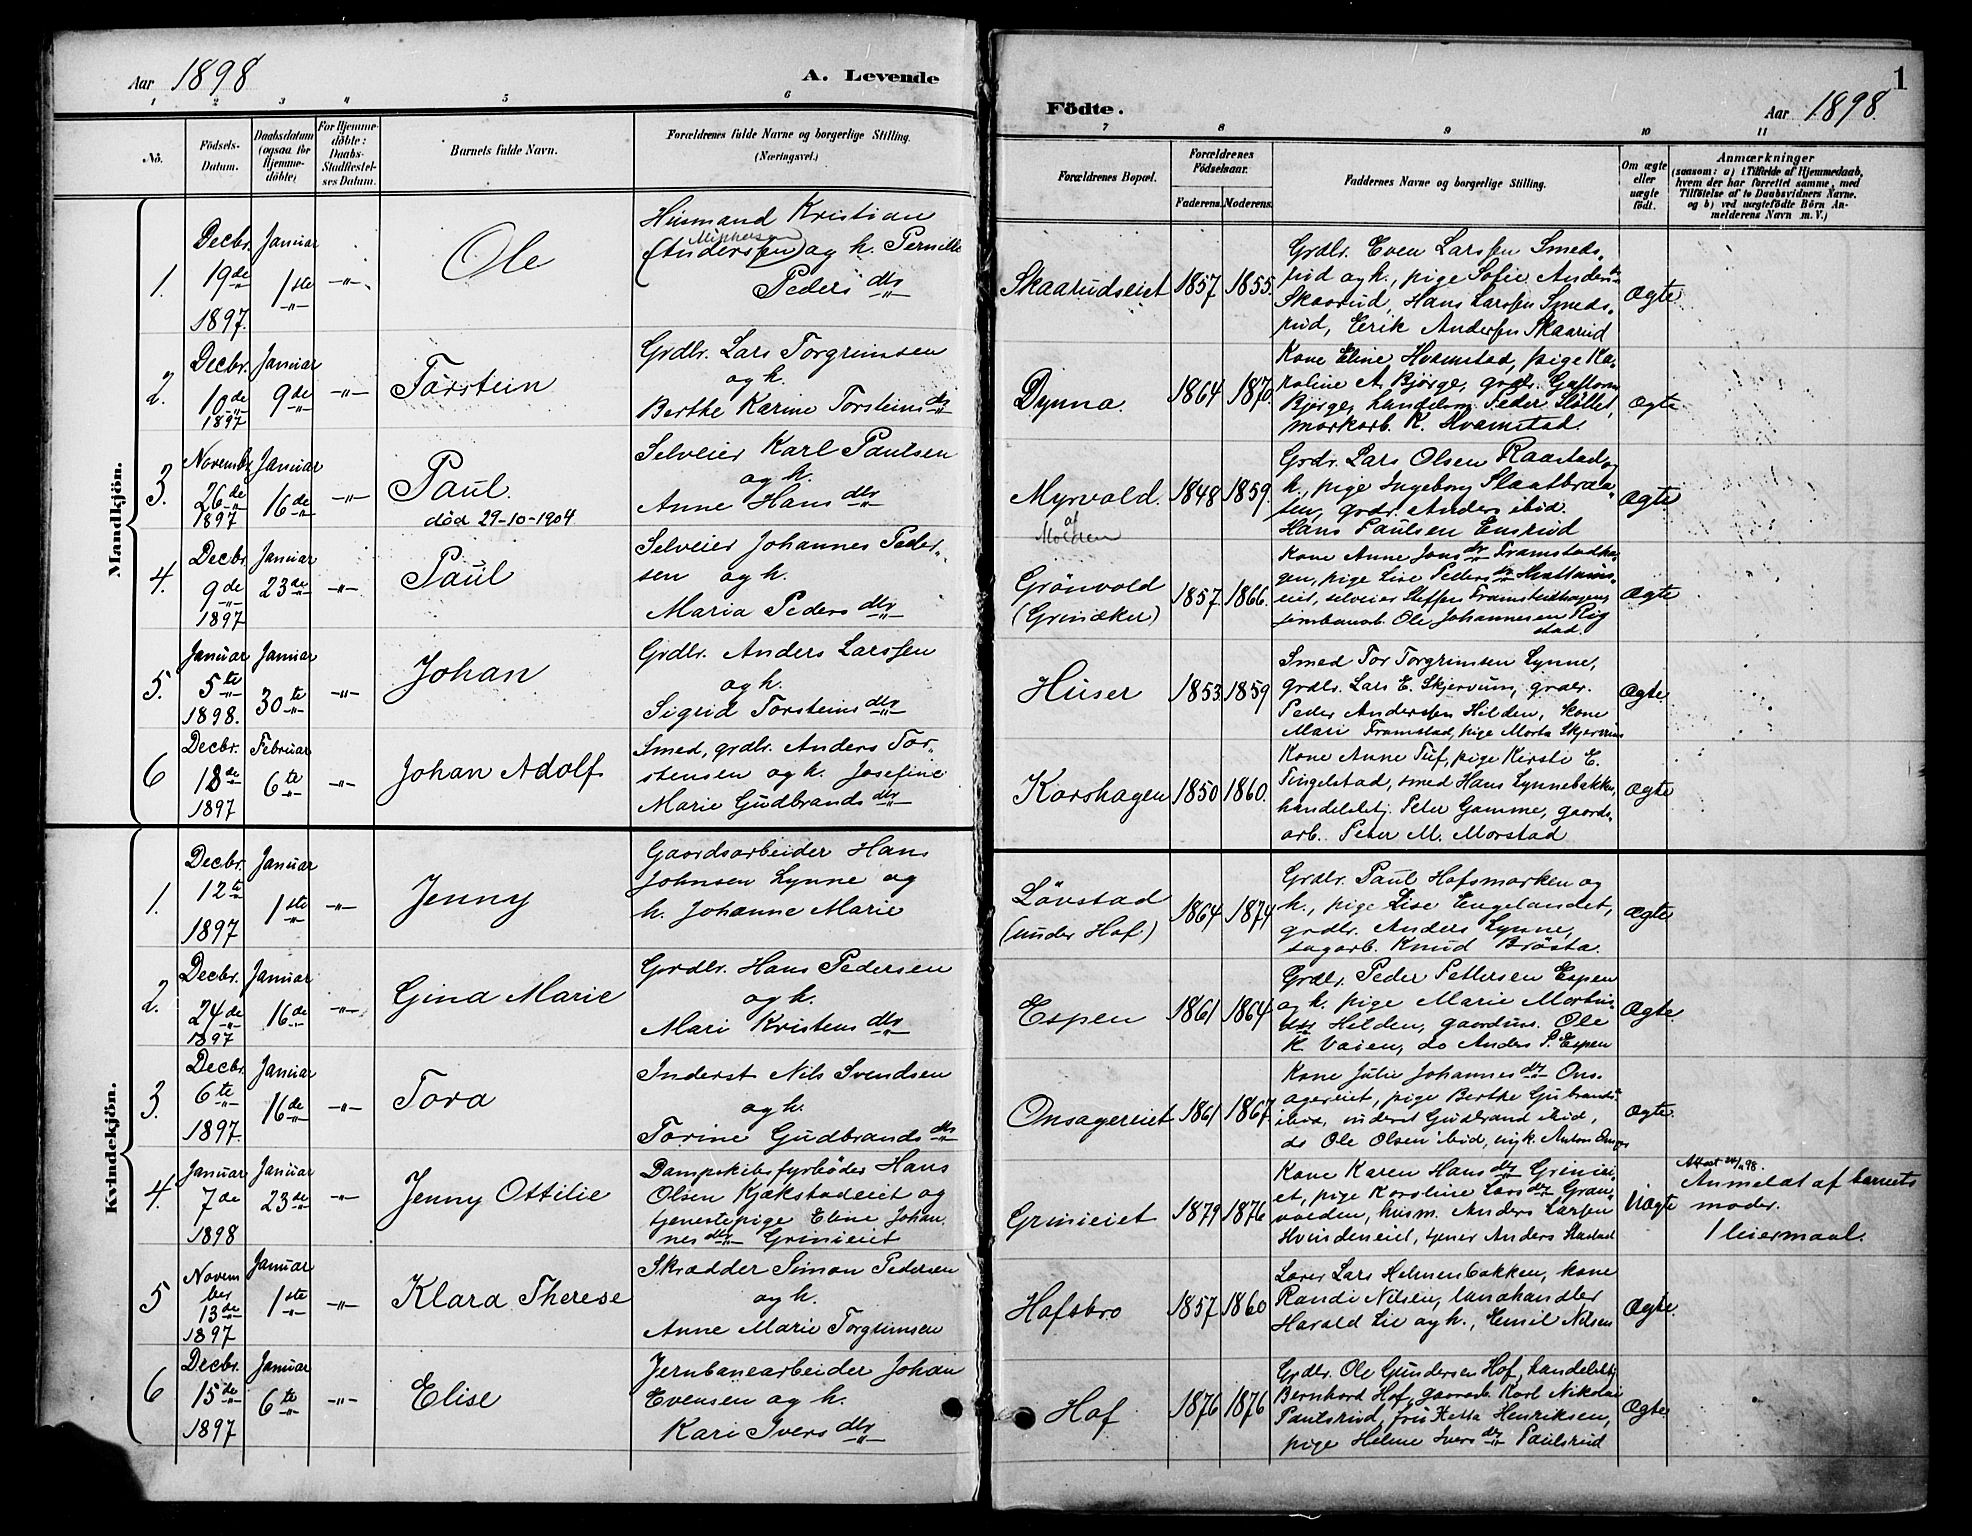 Aar 1898
A. Levende
1 2 3 4 5 6
No.
Födsels-
Datum.
Daabsdatum
(ogsaa for
Hjemme-
döbte)
For Hjemme-
döbte:
Daabs-
Stadfæstel-
ses Datum.
Barnets fulde Navn.
Forældrenes fulde Navne og borgerlige Stilling.
(Næringsvei.)
Mandkjön.
1.
Decbr.
19de
1897.
Januar
1ste
-"-
Ole
Husmand Kristian
(Andersen) og h. Pernille
Peders dtr
2.
Decbr.
10de
1897
Januar
9de
-"-
Torstein
Grdbr. Lars Torgrimsen
og h.
Berthe Karine Torsteins dtr
3.
Novembr
26de
1897
Januar
16de
-"-
Paul.
död 29-10-1904
Selveier Karl Paulsen
og h.
Anne Hans dtr
4.
Decbr.
9de
1897
Januar
23de
-"-
Paul
Selveier Johannes Peder-
sen og h.
Maria Peders dtr
5.
Januar
5te
1898.
Januar
30te
-"-
Johan
Grdbr. Anders Larssen
og h.
Sigrid Torsteins dtr
6
Decbr.
18de
1897
Februar
6te
-"-
Johan Adolf
Smed, grdbr. Anders Tor-
stensen og h. Josefine
Marie Gudbrands dtr
Kvindekjön.
1.
Decbr.
12te
1897
Januar
1ste
-"-
Jenny
Gaardsarbeider Hans
Johnsen Lynne og
h. Johanne Marie
2.
Decbr.
24de
1897
Januar
16de
-"-
Gina Marie
Grdbr. Hans Pedersen
og h.
Mari Kristens dtr
3.
Decbr.
6te
1897.
Januar
16de
-"-
Tora
Inderst Nils Svendsen
og h.
Torine Gudbrands dtr
4.
Januar
7de
1898
Januar
23de
-"-
Jenny Ottilie
Dampskibsfyrbøder Hans
Olsen Kjækstadeiet og
tjenestepige Eline Johan-
nes dtr Grinieiet
5
Novem
ber
13de
1897
Januar
1ste
-"-
Klara Therese
Skrædder Simon Pedersen
og h.
Anne Marie Torgrimsen
6
Decbr.
15de
1897
Januar
6te
-"-
Elise
Jernbanearbeider Johan
Evensen og h.
Kari Ivers dtr
1
Födte.
Aar 1898.
7 8 9 10 11
Forældrenes Bopæl.
Forældrenes
Födselsaar.
Faderens. Moderens.
Faddernes Navne og borgerlige Stilling.
Om ægte
eller
uægte
födt.
Anmærkninger
(saasom: a) i Tilfælde af Hjemmedaab,
hvem der har forrettet samme, med
Tilföielse af to Daabsvidners Navne.
og b) ved uægtefödte Börn An-
melderens Navn m. V.)
Skaarudseiet
1857
1855.
Grdbr. Even Larssen Smeds-
rud og h., pige Sofie Anders
Skaarud, Hans Larssen Smeds-
rud, Erik Andersen Skaarud
ægte
Dynna.
1864
1870.
Kone Eline Hvamstad, pige Ka-
roline A. Bjørge, grdbr. Gustav
Bjørge, handelsm. Peder Sløttet,
markarb. K. Hvamstad
ægte
Myrvold.
af
Molden
1848
1859.
Grdr. Lars Olsen Raastad og
h., pige Ingeborg Slaatbraa-
ten, grdr. Anders ibid.
Hans Paulsen Ensrud
ægte
Grönvold
(Grinæker)
1857.
1866.
Kone Anne Jons dtr Framstadha-
gen, pige Lise Peders dtr Hvattums-
eiet, selveier Steffen Framstadhagen,
jernbanarb. Ole Johannesen Rig
stad.
ægte
Huser
1853
1859
Smed Tor Torgrimsen Lynne,
grdbr. Lars E. Skjervum, grdbr.
Peder Andersen Hilden, kone
Mari Framstad, pige Marta Skjervum
ægte
Korshagen
1850
1860.
Kone Anne Tuf, pige Kirsti E.
Tingelstad, smed Hans Lynnebakken,
handelsbetj. Peter Gamme, gaards-
arb. Peter M. Morstad
ægte
Lövstad
(under Hof)
1864
1874
Grdbr. Paul Hofsmarken og
h., pige Lise Engelandet,
grdbr. Anders Lynne,
sagarb. Knud Brösta.
ægte
Espen
1861
1864
Grdbr. Peder Pettersen Espen
og h. pige Marie Martins-
dtr Hilden, gaardm. Ole
K. Vaien, do Anders P. Espen
ægte
Onsagereiet
1861
1867.
Kone Julie Johannes dtr Ons-
agereiet, pige Berthe Gubrands
ibid, inderst Gudbrand ibid,
do Ole Olsen ibid, ungk. Anton
ægte
Grinieiet
1879
1876
Kone Karen Hans dtr Griniei-
et, pige Karoline Lars dtr Gran-
volden, husm. Anders Larsen
Hvindeneiet, tjener Anders
Uægte
Attest
Anmeldt af barnets
moder.
1 leiermaal.
Hofsbro
1857
1860
Lærer Lars Helmenbakken, kone
Randi Nilsen, landhandler
Harald Lie og h., Emil Nilsen
ægte
Hof
1876
1876
Grdbr. Ole Gundersen Hof, handelsbetj
Bernhard Hof, gaardarb. Karl Nikolai
Paulsrud, fru Hetta Henriksen,
pige Helene Ivers dtr Paulsrud
ægte